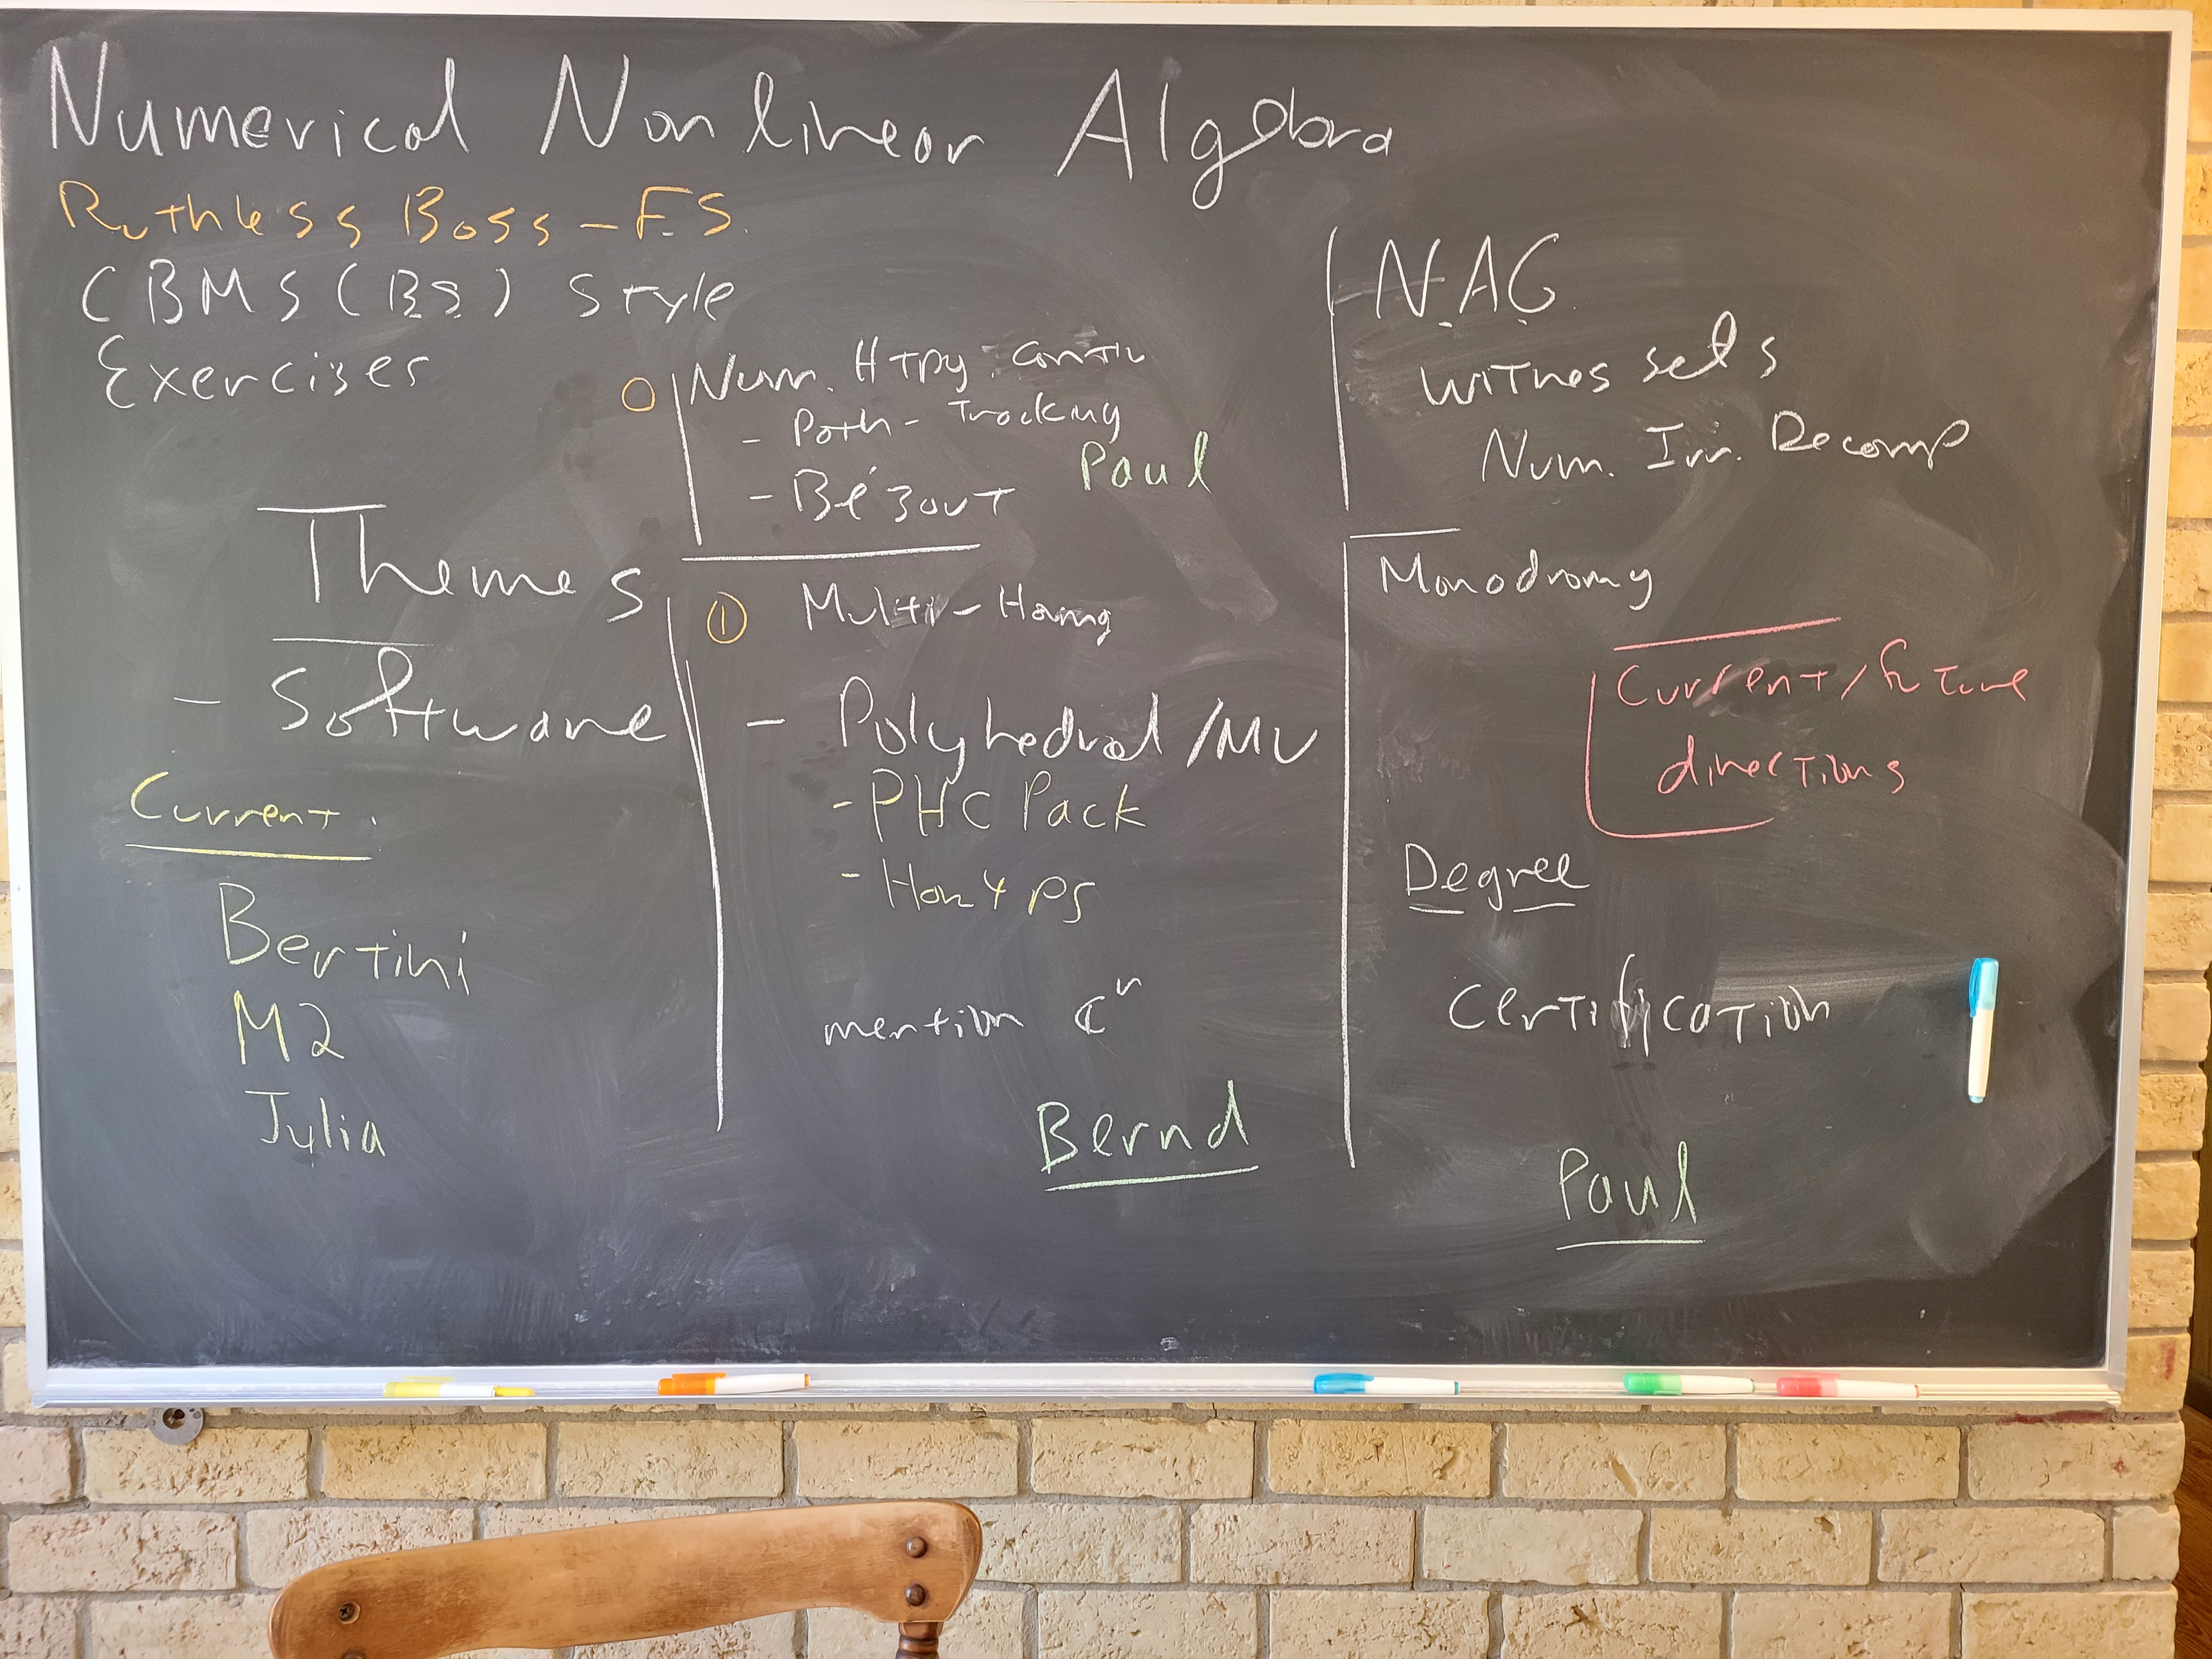 Numerical Nonlinear Algebra
Ruthless Boss - F.S.
CBMS (BS) Style
Exercises
Themes
- Software
Current
Bertini
M2
Julia
0 Num. HTpy. Contin
- Path-Tracking
- Bézout
Paul
1 Multi-Homog
- Polyhedral/MV
- PHCPack
- Hom4PS
mention ℂⁿ
Bernd
N.A.G.
Witness sets
Num. Irr. Decomp
Monodromy
Current/future
directions
Degree
Certification
Paul